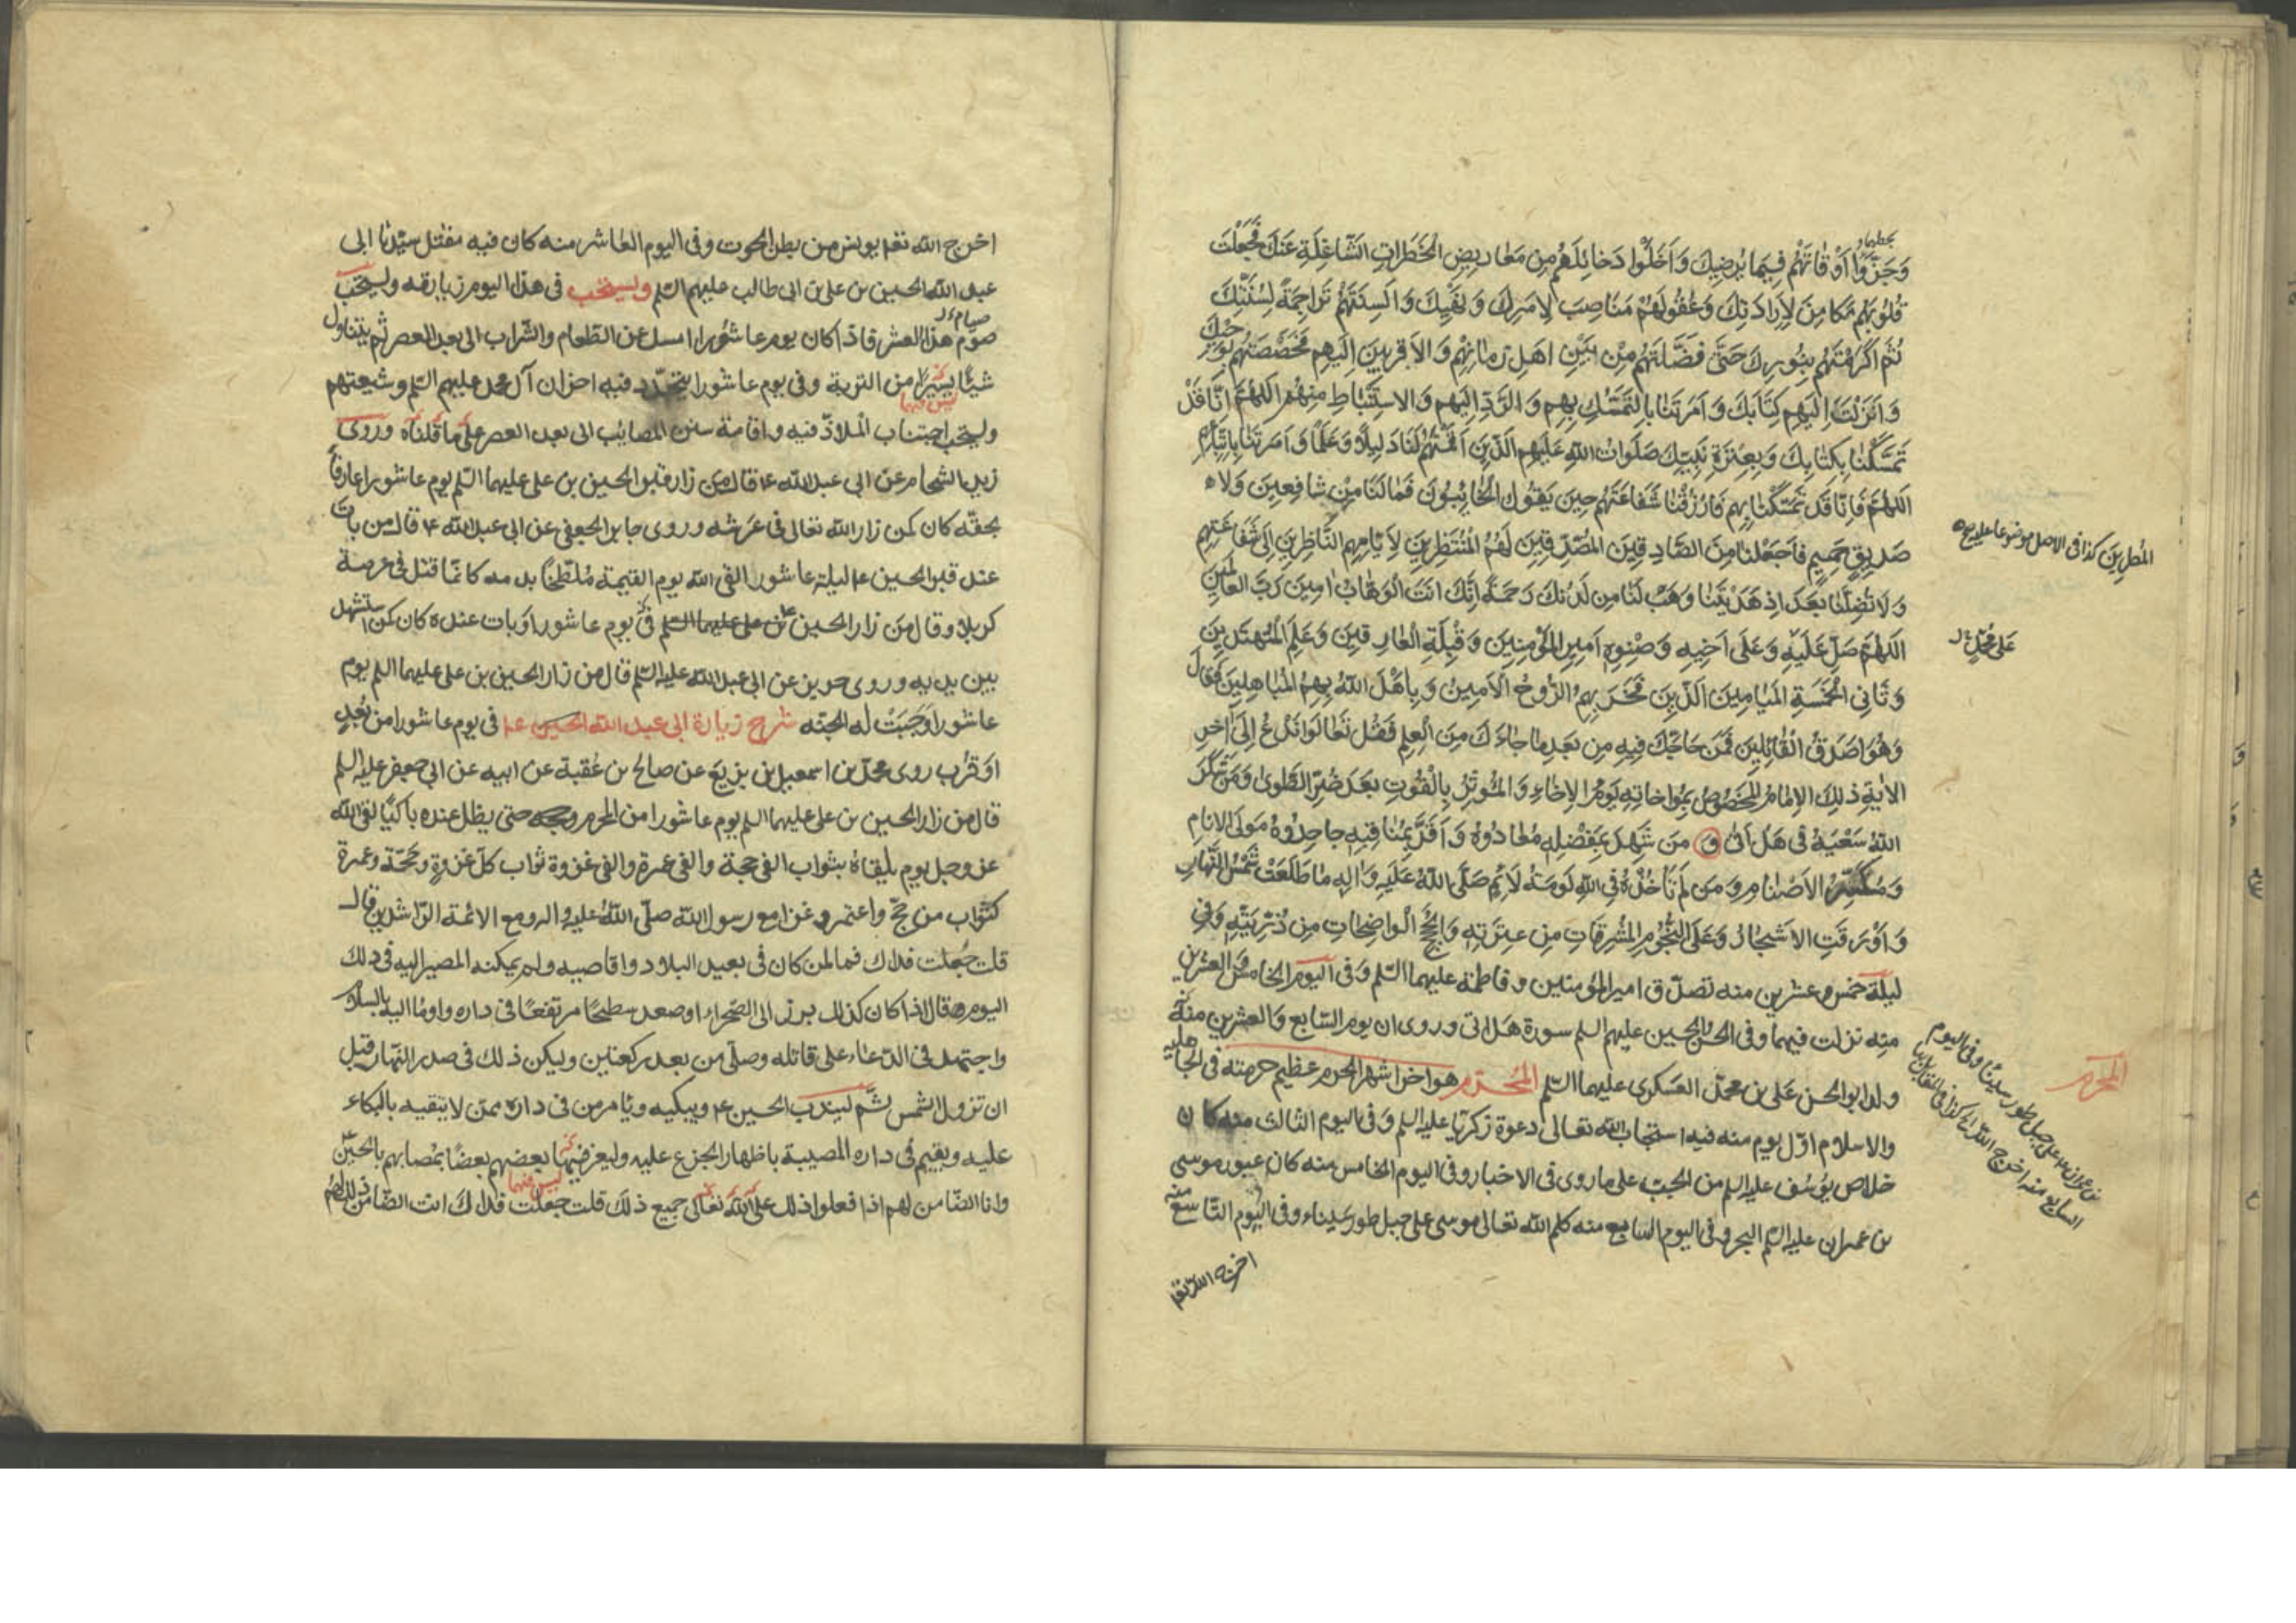 وَجَزَّوُا اَوْقَاتَهُمْ فِيمَا يُرْضِيكَ وَاَخْلَوْا دَخَائِلَهُمْ مِن مَعَارِيضِ الْخَطَرَاتِ الشَّاغِلَةِ عَنْكَ فَجَعَلْتَ
قُلُوبَهُمْ مَكَامِنَ لِاِرَادَتِكَ وَعُقُولَهُمْ مَنَاصِبَ لِاَمْرِكَ وَنَهْيِكَ وَاَلْسِنَتَهُمْ تَرَاجِمَةً لِسُنَّتِكَ
ثُمَّ اَكْرَمْتَهُمْ بِنُورِكَ حَتَّى فَضَّلْتَهُمْ مِنْ بَيْنِ اَهْلِ زَمَانِهِمْ وَالاَقْرَبِينَ اِلَيْهِمْ فَخَصَصْتَهُمْ بِوَحْيِكَ
وَاَنْزَلْتَ اِلَيْهِمْ كِتَابَكَ وَاَمَرْتَنَا بِالتَّمَسُّكِ بِهِم وَالرَّدِّ اِلَيْهِم وَالاسْتِنْبَاطِ مِنْهُم اَللّهُمَّ اِنَّا قَدْ
تَمَسَّكْنَا بِكِتَابِكَ وَبِعِتْرَةِ نَبِيِّكَ صَلَوَاتُ اللهِ عَلَيْهِم الَّذِينَ اَقَمْتَهُمْ لَنَا دَلِيلاً وَعَلَماً وَاَمَرْتَنَا بِاتِّبَاعِهِمْ
اللّهُمَّ فَاِنَّا قَدْ تَمَسَّكْنَا بِهِم فَارْزُقْنَا شَفَاعَتَهُمْ حِينَ يَقُولُ الْخَائِبُونَ فَمَا لَنَا مِنْ شَافِعِينَ وَلاَ
صَدِيقٍ حَمِيمٍ فَاجْعَلْنَا مِنَ الصَّادِقِينَ الْمُصَدِّقِينَ لَهُمْ الْمُنْتَظِرِينَ لِاَيَّامِهِم النَّاظِرِينَ اِلَى شَفَاعَتِهِم
وَلاَ تُضِلَّنَا بَعْدَ اِذْ هَدَيْتَنَا وَهَبْ لَنَا مِن لَدُنْكَ رَحْمَةً اِنَّكَ اَنْتَ الْوَهَّابُ امِينَ رَبَّ العَالَمِينَ
اللّهُمَّ صَلِّ عَلَيْهِ وَعَلَى اَخِيهِ وَصِنْوِهِ اَمِيرِ الْمُؤْمِنِينَ وَقِبْلَةِ الْعَارِفِينَ وَعَلَمِ الْمُهْتَدِينَ
وَثَانِي الْخَمْسَةِ الْمَيَامِينَ الَّذِينَ فَخَرَ بِهِمُ الرُّوحُ الاَمِينُ وَبَاهَلَ اللهُ بِهِمُ الْمُبَاهِلِينَ فَقَالَ
وَهُوَ اَصْدَقُ الْقَائِلِينَ فَمَنْ حَاجَّكَ فِيهِ مِن بَعْدِ مَا جَاءَكَ مِنَ الْعِلْمِ فَقُلْ تَعَالَوْا نَدْعُ اِلَى آخِرِ
الايَةِ ذلِكَ الاِمَامُ الْمَخْصُوصُ بِمُوَاخَاتِهِ يَوْمَ الاِخَاءِ وَالْمُؤْثِرُ بِالْقُوتِ بَعْدَ ضُرِّ الطَّوى وَمَنْ شَكَرَ
اللهُ سَعْيَهُ فِى هَلْ اَتى وَ مَنْ شَهِدَ بِفَضْلِهِ مُعَادُوهُ وَاَقَرَّ بِمَنَاقِبِهِ جَاحِدُوهُ مَوْلَى الاَنَامِ
وَمُكَسِّرُ الاَصْنَامِ وَمَن لَمْ تَاْخُذْهُ فِى اللهِ لَوْمَةُ لاَئِمٍ صَلَّى اللهُ عَلَيْهِ وَالِهِ مَا طَلَعَتْ شَمْسُ النَّهَارِ
وَاَوْرَقَتِ الاَشْجَارُ وَعَلَى النُّجُومِ الْمُشْرِقَاتِ مِن عِتْرَتِهِ وَالْحُجَجِ الْوَاضِحَاتِ مِن ذُرِّيَّتِهِ وَفِي
لَيلَةِ خمس وعشرين منه تصدّق امير المؤمنين وفاطمة عليهما السّلم وَفى اليوم الخامس والعشرين
منه نزلت فيهما وفى الحسن والحسين عليهم السلم سورة هل اتى وروى ان يوم السّابع والعشرين منه
ولد ابو الحسن علىّ بن محمّد العسكرى عليهما السّلم المُحَرّم هو اخر اشهر الحرم عظيم حرمته فى الجاهلية
والاسلام اوّل يوم منه فيه استجاب الله تعالى دعوة زكريّا عليه السلم وفى اليوم الثالث منه كان
خلاص يُوسُف عليه السلم من الجبّ على ما روى فى الاخبار وفى اليوم الخامس منه كان عبور موسى
بن عمران عليه السّلم البحر وفى اليوم السابع منه كلم الله تعالى موسى على جبل طور سيناء وفى اليوم التّاسع منه
اخرج الله تعا
المُطِرِينَ كذا فى الاصل موضوعا عليه صح
عَلَى مُحَمَّدٍ
المحرم
اخرج الله تعا يونس من بطن الحوت وفى اليوم العاشر منه كان فيه مقتل سيّدنا ابى
عبد الله الحسين بن على بن ابى طالب عليهم السّلم ويستحب فى هذا اليوم زيارته ويستحب
صوم هذا العشر فاذا كان يوم عاشُورا امسك عن الطّعام والشّراب الى بعد العصر ثم يتناول
شيئًا يسيرًا من التربة وفى يوم عاشورا يتجدّد فيه احزان آل محمد عليهم السّلم وشيعتهم
ويستحب اجتناب الْملاذّ فيه واقامة سنن المصائب الى بعد العصر على ما قلناه وروى
زيد الشحام عن ابى عبد الله ع قال من زار قبر الحسين بن على عليهما السّلم يوم عاشورا عارفًا
بحقّه كان كمن زار الله تعالى فى عَرشه وروى جابر الجعفى عن ابى عبد الله ع قال من بات
عند قبر الحسين ع ليلة عاشورا لقى الله يوم القيمة مُلطّخًا بدمه كانّما قتل فى عرصة
كربلا وقال مَن زار الحسين بن على عليهما السّلم فى يوم عاشورا وبات عنده كان كمن استشهد
بين يديه وروى حريز عن ابى عبد الله عليه السّلم قال من زار الحسين بن على عليهما السلم يوم
عاشورا وَجَبَتْ له الجنّه شرح زيارة ابى عبد الله الحسين ع فى يوم عاشورا من بُعدٍ
اوقرُب روى محمّد بن اسمعيل بن بزيع عن صالح بن عُقبة عن ابيه عن ابى جعفر عليه السلم
قال من زار الحسين بن على عليهما السلم يوم عاشورا من المحرم حتى يظل عنده باكيًا لقى الله
عز وجل يوم يلقاهُ بثواب الفى حجة والفى عمرة والفى غزوة ثواب كلّ غزوةٍ وحَجّة وعمرة
كثواب من حجّ واعتمر وغزا مع رسول الله صلّى اللهُ عليه واله ومع الائمة الرّاشدين قال
قلت جُعلت فداك فما لمن كان فى بعيد البلاد واقاصيه ولم يمكنه المصير اليه فى ذلك
اليوم قال اذا كان كذلك برز الى الصّحراء او صعد سطحًا مرتفعًا فى داره واومأ اليه بالسلام
واجتهد فى الدّعاء على قاتله وصلّى من بعد ركعتين وليكن ذلك فى صدر النّهار قبل
ان تزول الشمس ثم ليندب الحسين ع ويبكيه ويأمر من فى داره ممّن لا يتقيه بالبكاء
عليه ويقيم فى داره المصيبة باظهار الجزع عليه وليعز فيها بعضهم بعضًا بمُصابهم بالحسين
وانا الضّامن لهم اذا فعلوا ذلك على الله تعالى جميع ذلك قلت جعلت فداك انت الضّامن ذلك لهم